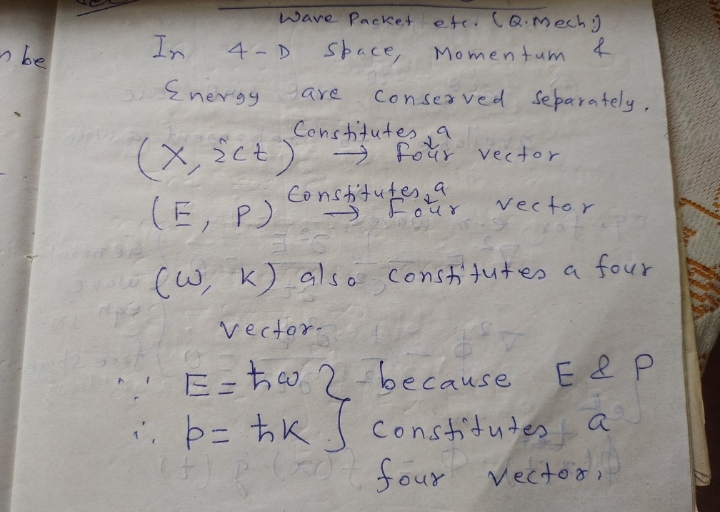 Wave Packet etc. (Q.Mech.)
n be
In 4-D space, Momentum &
Energy are conserved separately.
Constitutes a
(X, ict) → four vector
Constitutes a
(E, P) → Four vector
(ω, K) also constitutes a four
vector.
∵ E = ħω } because E & P
∴ p = ħK } constitutes a
four vector.